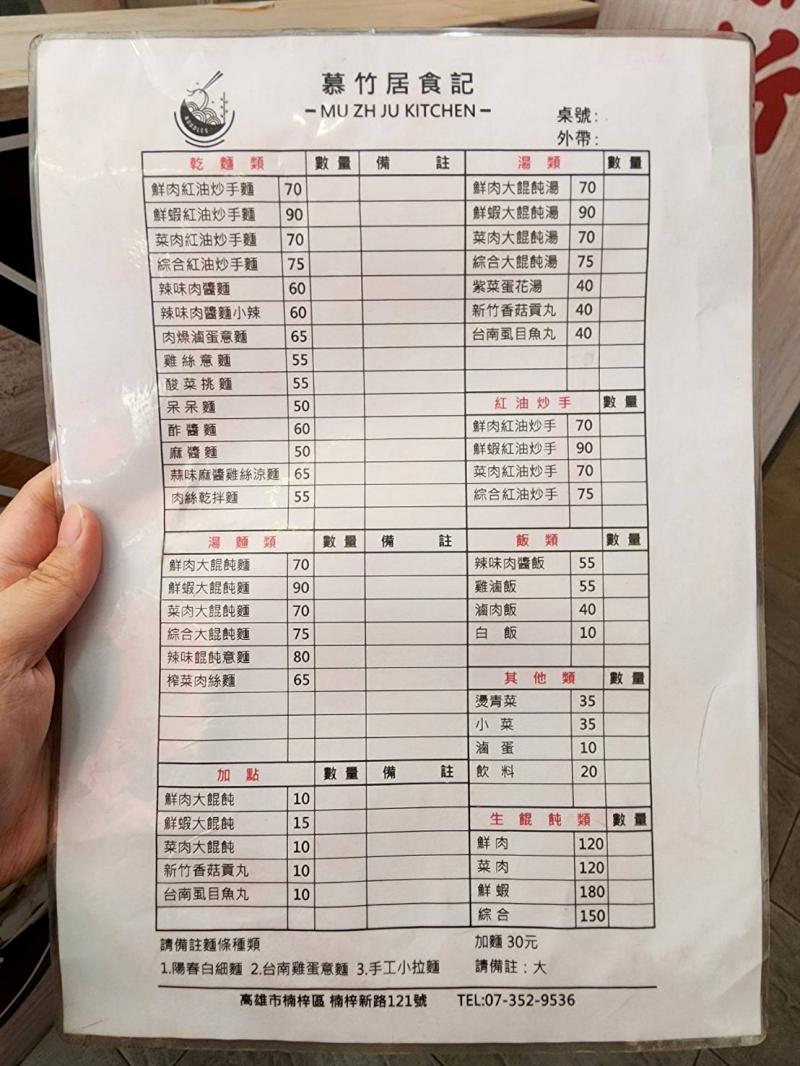 慕竹居食記
MU ZH JU KITCHEN
NOODLES
桌號:
外帶:
乾麵類 數量 備註
鮮肉紅油炒手麵 70
鮮蝦紅油炒手麵 90
菜肉紅油炒手麵 70
綜合紅油炒手麵 75
辣味肉醬麵 60
辣味肉醬麵小辣 60
肉燥滷蛋意麵 65
雞絲意麵 55
酸菜挑麵 55
呆呆麵 50
酢醬麵 60
麻醬麵 50
蒜味麻醬雞絲涼麵 65
肉絲乾拌麵 55
湯麵類 數量 備註
鮮肉大餛飩麵 70
鮮蝦大餛飩麵 90
菜肉大餛飩麵 70
綜合大餛飩麵 75
辣味餛飩意麵 80
榨菜肉絲麵 65
加點 數量 備註
鮮肉大餛飩 10
鮮蝦大餛飩 15
菜肉大餛飩 10
新竹香菇貢丸 10
台南虱目魚丸 10
湯類 數量
鮮肉大餛飩湯 70
鮮蝦大餛飩湯 90
菜肉大餛飩湯 70
綜合大餛飩湯 75
紫菜蛋花湯 40
新竹香菇貢丸 40
台南虱目魚丸 40
紅油炒手 數量
鮮肉紅油炒手 70
鮮蝦紅油炒手 90
菜肉紅油炒手 70
綜合紅油炒手 75
飯類 數量
辣味肉醬飯 55
雞滷飯 55
滷肉飯 40
白飯 10
其他類 數量
燙青菜 35
小菜 35
滷蛋 10
飲料 20
生餛飩類 數量
鮮肉 120
菜肉 120
鮮蝦 180
綜合 150
請備註麵條種類
1.陽春白細麵 2.台南雞蛋意麵 3.手工小拉麵
加麵 30元
請備註：大
高雄市楠梓區 楠梓新路121號 TEL:07-352-9536